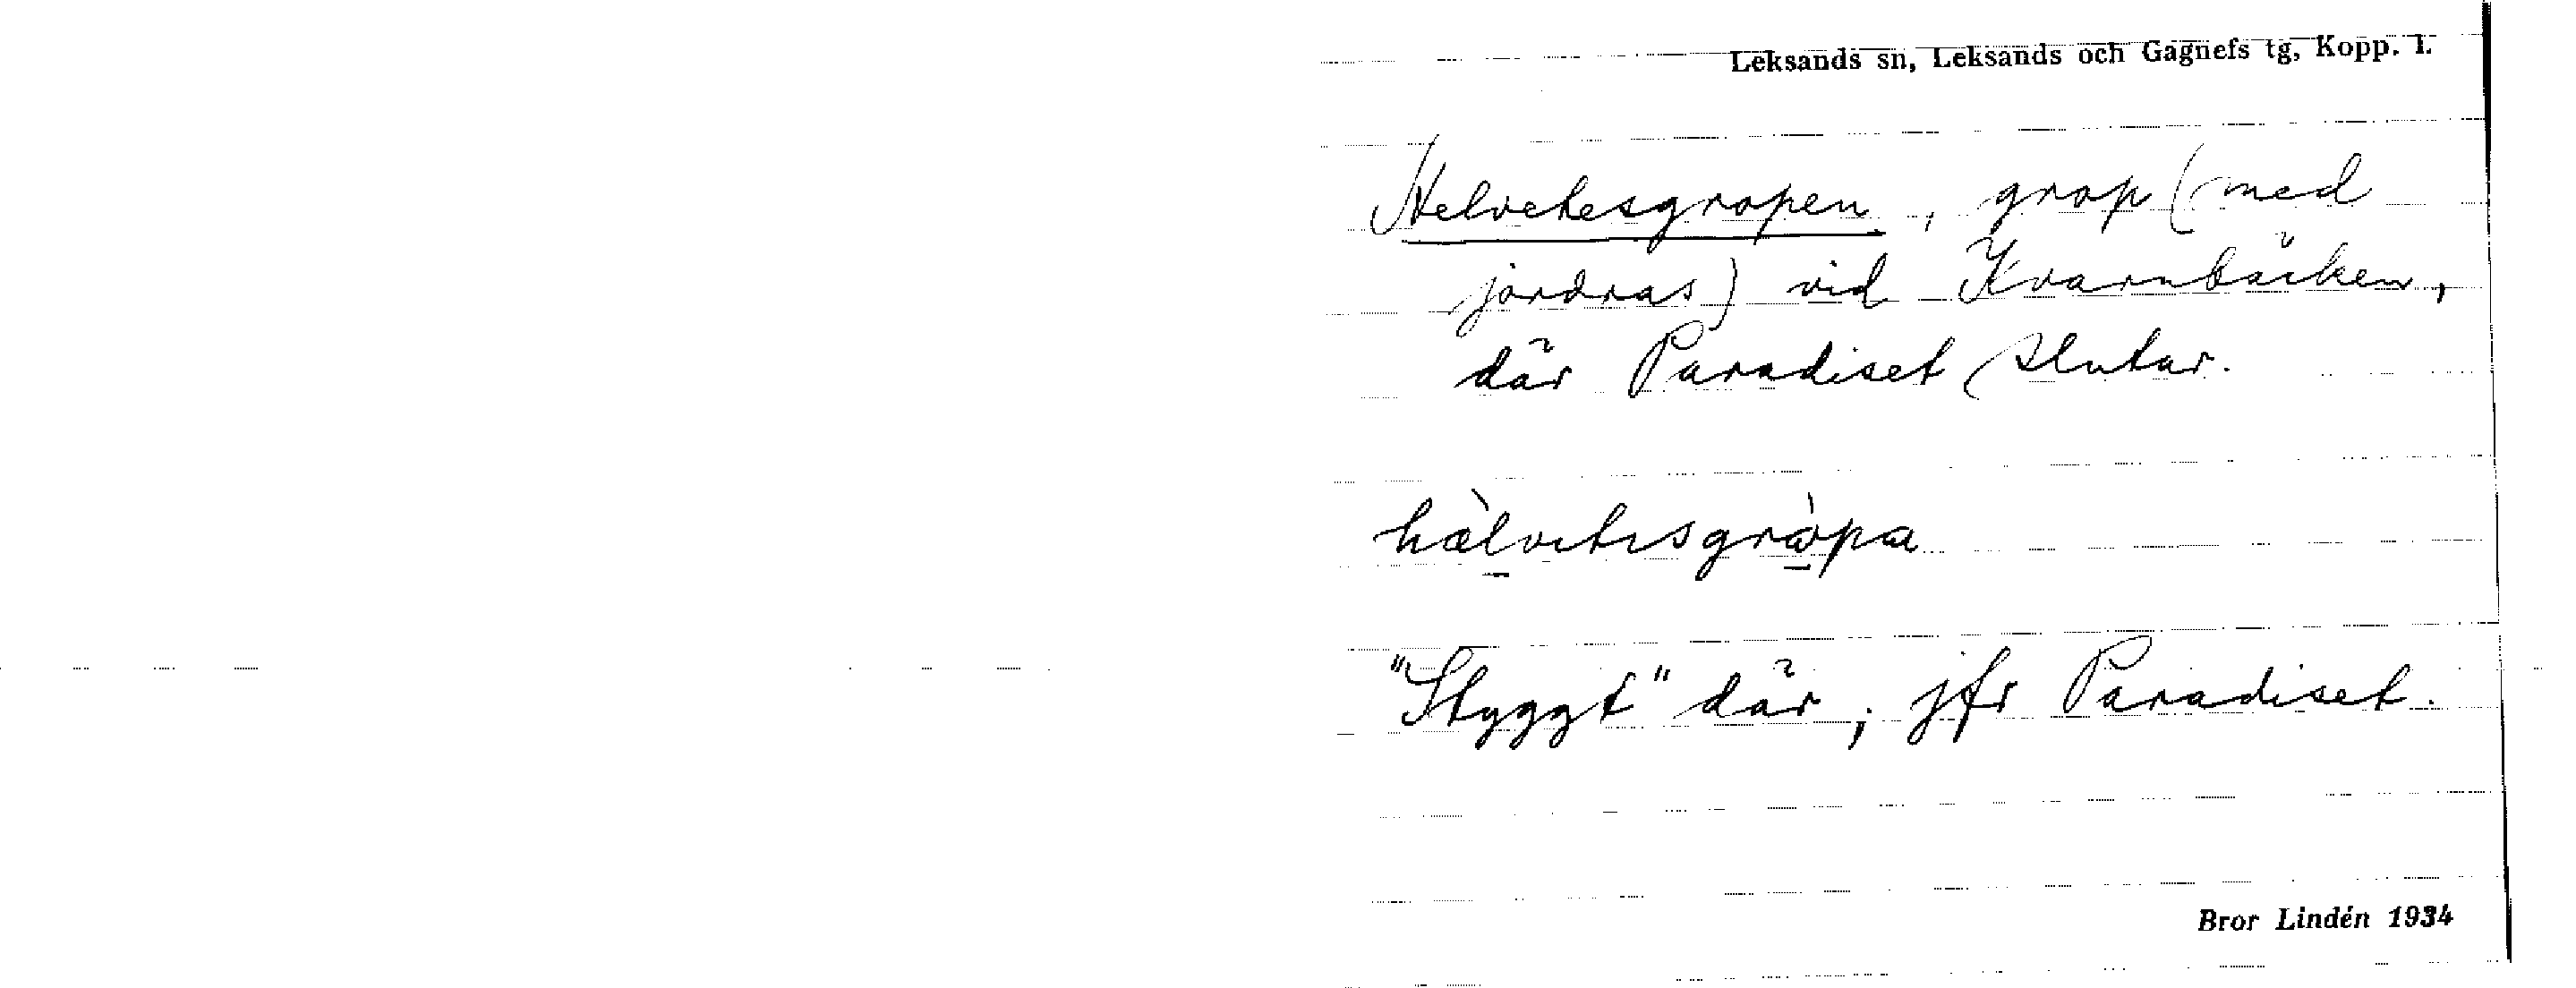 Leksands sn, Leksands och Gagnefs tg, Kopp. l.
Helvetesgropen, grop (med
jordras) vid Kvarnbäcken,
där Paradiset slutar.
hæ̀lvitisgrò̱pa
"Styggt" där; jfr Paradiset.
Bror Lindén 1934